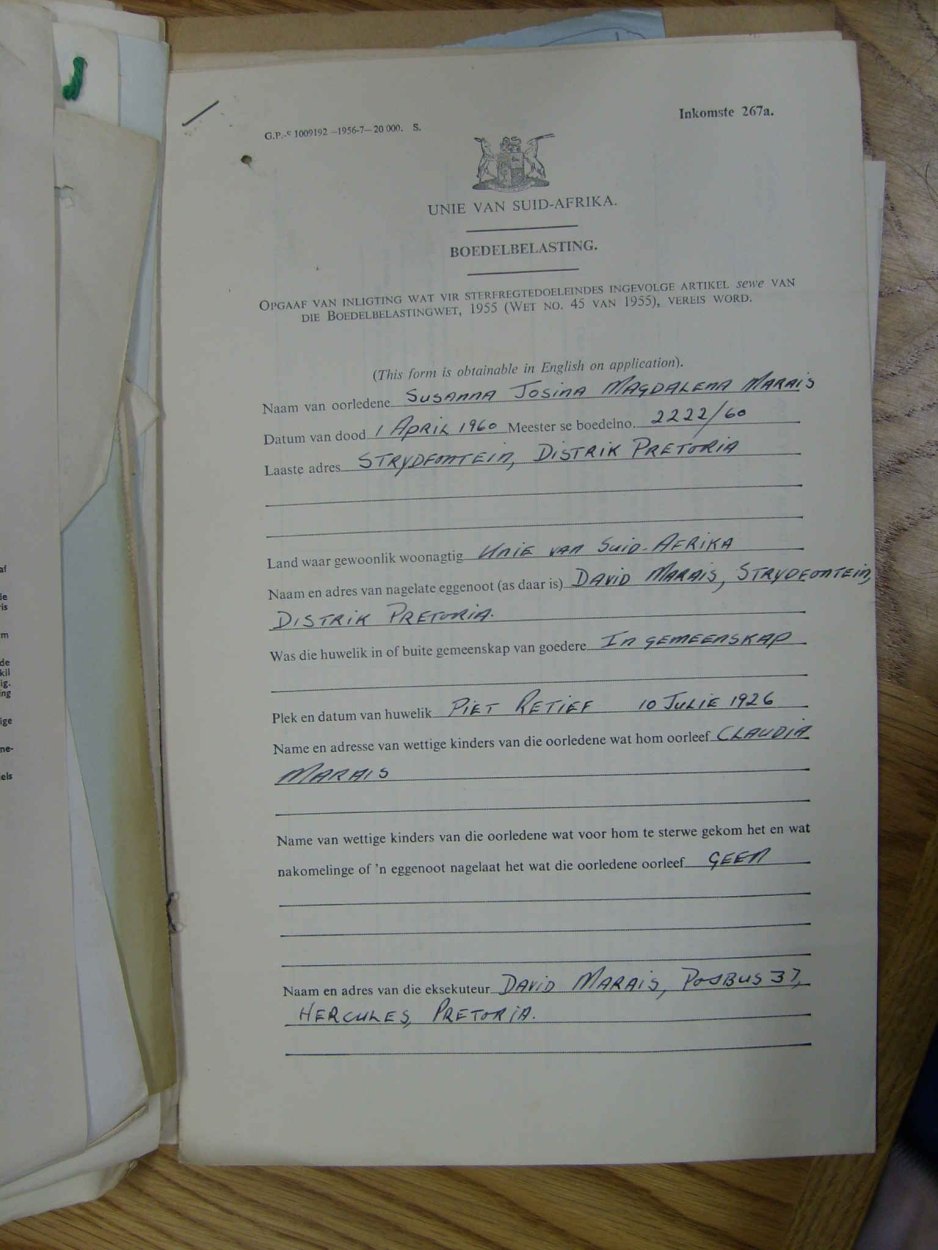 Inkomste 267a.
G.P.-S 1009192 —1956-7— 20 000. S.
UNIE VAN SUID-AFRIKA.
BOEDELBELASTING.
OPGAAF VAN INLIGTING WAT VIR STERFREGTEDOELEINDES INGEVOLGE ARTIKEL sewe VAN
DIE BOEDELBELASTINGWET, 1955 (WET NO. 45 VAN 1955), VEREIS WORD.
(This form is obtainable in English on application).
Naam van oorledene SUSANNA JOSINA MAGDALENA MARAIS
Datum van dood 1 APRIL 1960 Meester se boedelno. 2222/60
Laaste adres STRYDFONTEIN, DISTRIK PRETORIA
Land waar gewoonlik woonagtig UNIE VAN SUID-AFRIKA
Naam en adres van nagelate eggenoot (as daar is) DAVID MARAIS, STRYDFONTEIN,
DISTRIK PRETORIA.
Was die huwelik in of buite gemeenskap van goedere IN GEMEENSKAP
Plek en datum van huwelik PIET RETIEF 10 JULIE 1926
Name en adresse van wettige kinders van die oorledene wat hom oorleef CLAUDIA
MARAIS
Name van wettige kinders van die oorledene wat voor hom te sterwe gekom het en wat
nakomelinge of 'n eggenoot nagelaat het wat die oorledene oorleef GEEN
Naam en adres van die eksekuteur DAVID MARAIS, POSBUS 37,
HERCULES, PRETORIA.